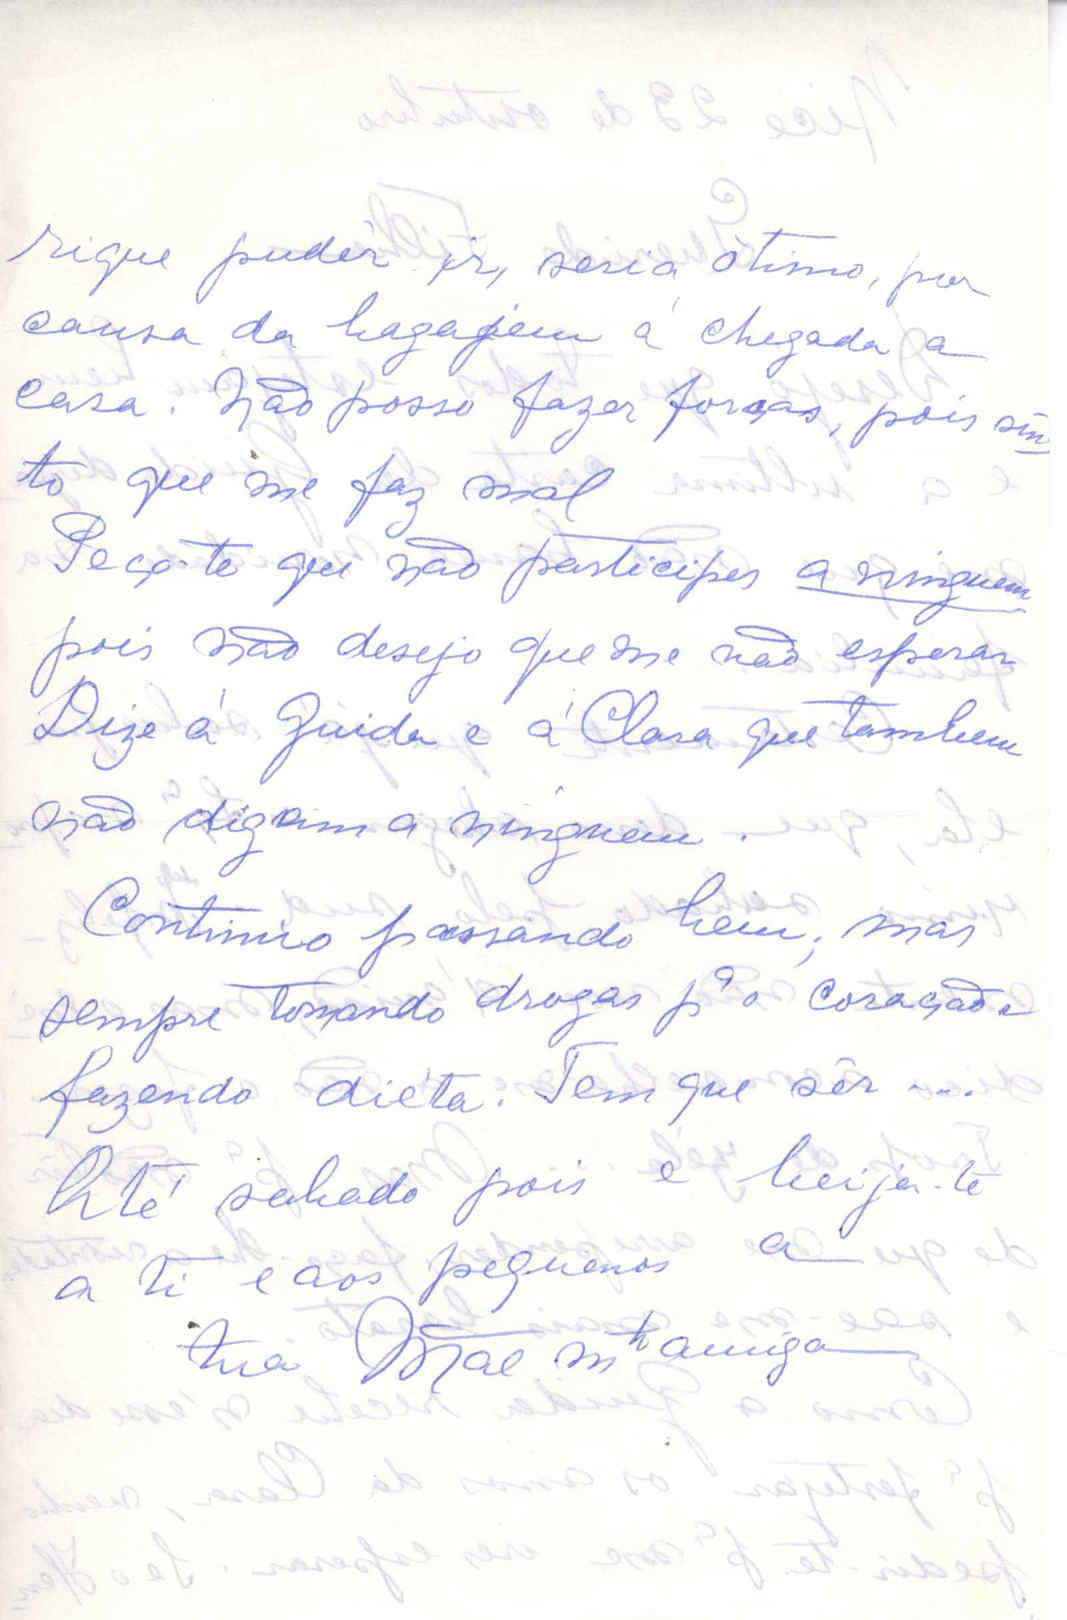 rique pudér ir, seria ótimo, por
causa da bagagem á chegada a
casa. Não posso fazer forças, pois sin
to que me faz mal
Peço-te que não participes a ninguem
pois não desejo que me vão esperar
Dize á Guida e á Clara que tambem
não digam a ninguem.
Continuo passando bem, mas
sempre tomando drogas pª o coração e
fazendo diéta. Tem que sêr ...
Até sabado pois e beija-te
a ti e aos pequenos a
tua Mãe mto amiga